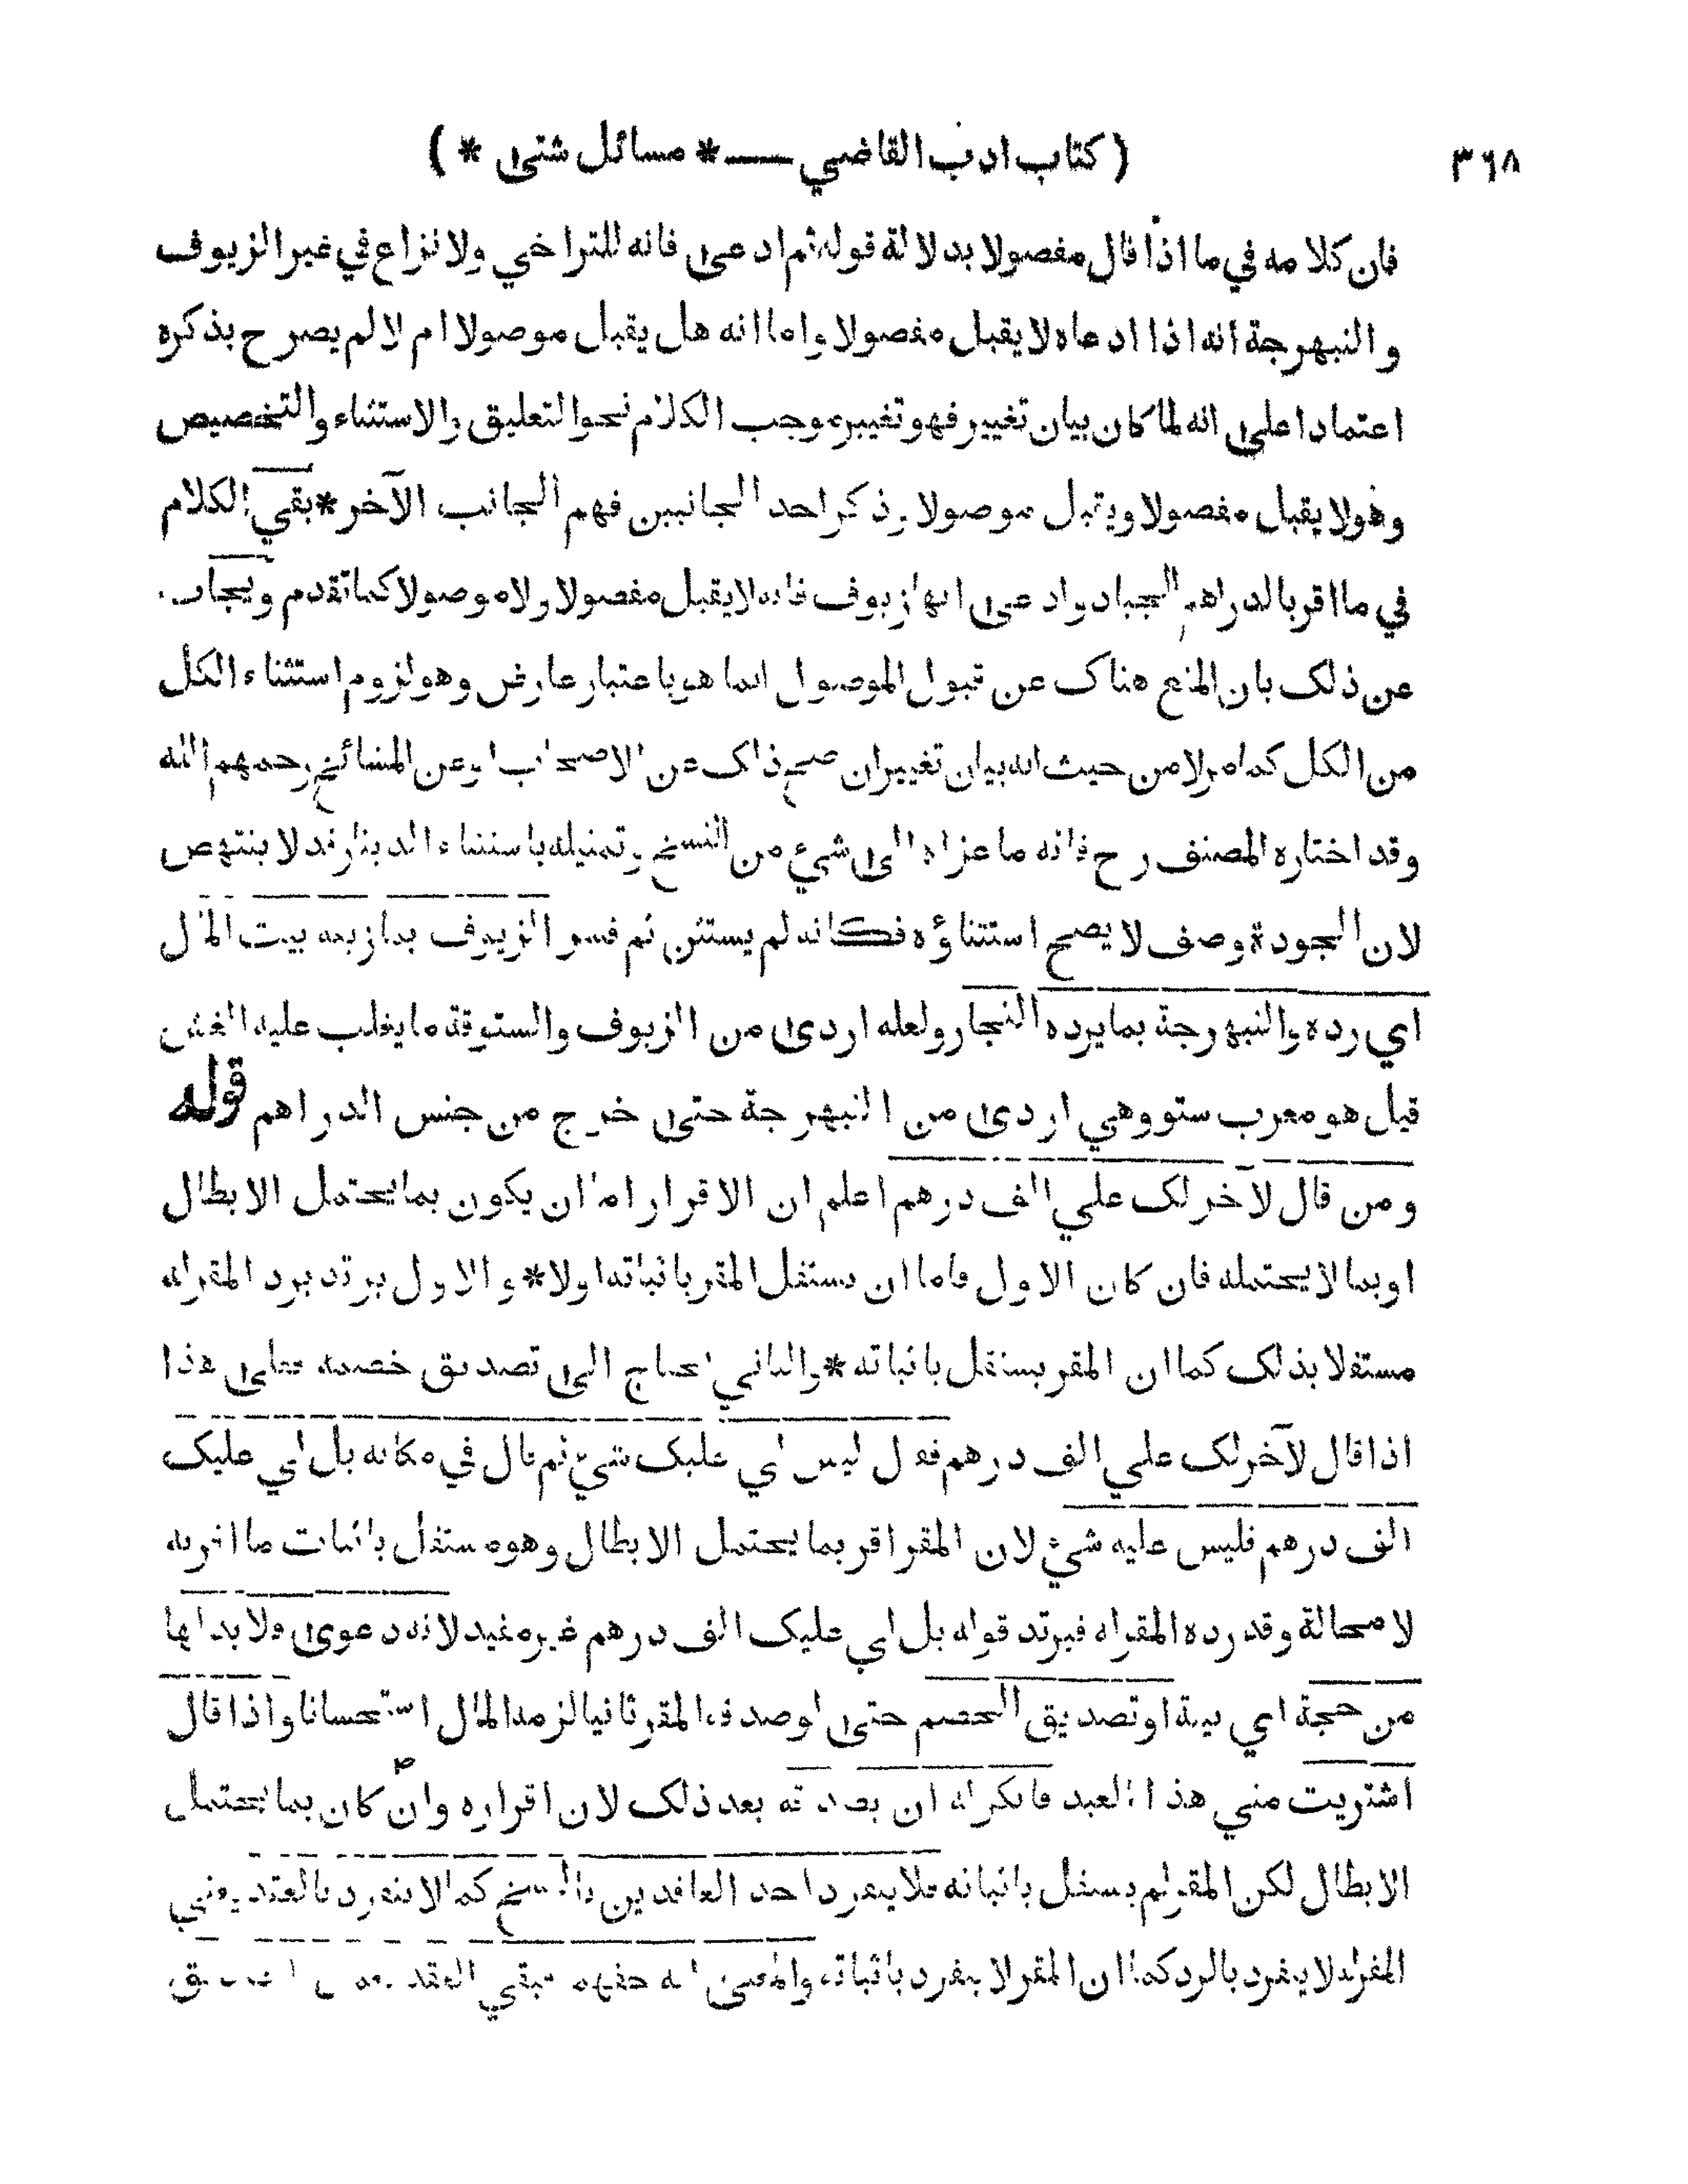 ٣٦٨
( كتاب ادب القاضي —— * مسائل شتى * )
فان كلامه في ما اذا قال مفصولا بدلالة قوله ثم ادعى فانه للتراخي ولا نزاع في غير الزيوف
و النبهرجة انه اذا ادعاه لا يقبل مفصولا واما انه هل يقبل موصولا ام لا لم يصرح بذكره
اعتمادا على انه لما كان بيان تغيير فهو تغيير موجب الكلام نحو التعليق والاستثناء والتخصيص
وهو لا يقبل مفصولا ويقبل موصولا وذكر احد الجانبين فهم الجانب الآخر * بقي الكلام
في ما اقر بالدراهم الجياد وادعى انها زيوف فانه لا يقبل مفصولا ولا موصولا كما تقدم ويجاب
عن ذلك بان المنع هناك عن قبول الموصول انما هو باعتبار عارض وهو لزوم استثناء الكل
من الكل كما مر لا من حيث انه بيان تغيير ان صح ذلك عن الاصحاب او عن المشائخ رحمهم الله
وقد اختاره المصنف رح فانه ما عزاه الى شيء من النسخ وتمثيله باستثناء الدينار قد لا ينتهض
لان الجودة وصف لا يصح استثناؤه فكانه لم يستثن ثم فسر الزيوف بما زيفه بيت المال
اي رده والنبهرجة بما يرده التجار ولعله اردى من الزيوف والستوقة ما يغلب عليه الغش
قيل هو معرب ستو وهي اردى من النبهرجة حتى خرج من جنس الدراهم قوله
ومن قال لآخر لك علي الف درهم اعلم ان الاقرار اما ان يكون بما يحتمل الابطال
او بما لا يحتمله فان كان الاول فاما ان يستقل المقر باثباته اولا * و الاول يرتد برد المقر له
مستقلا بذلك كما ان المقر يستقل باثباته * والثاني يحتاج الى تصديق خصمه فعلى هذا
اذا قال لآخر لك علي الف درهم فقال ليس لي عليك شيء ثم قال في مكانه بل لي عليك
الف درهم فليس عليه شيء لان المقر اقر بما يحتمل الابطال وهو مستقل باثبات ما اقر به
لا محالة وقد رده المقر له فيرتد قوله بل لي عليك الف درهم غير مفيد لانه دعوى ولا بد لها
من حجة اي بينة او تصديق الخصم حتى لو صدقه المقر ثانيا لزمه المال استحسانا واذا قال
اشتريت مني هذا العبد فانكر له ان يصدقه بعد ذلك لان اقراره وان كان بما يحتمل
الابطال لكن المقر لم يستقل باثباته فلا ينفرد احد العاقدين بالفسخ كما لا ينفرد بالعقد يعني
المقر له لا ينفرد بالرد كما ان المقر لا ينفرد باثباته والمعنى انه حقهما فبقي العقد